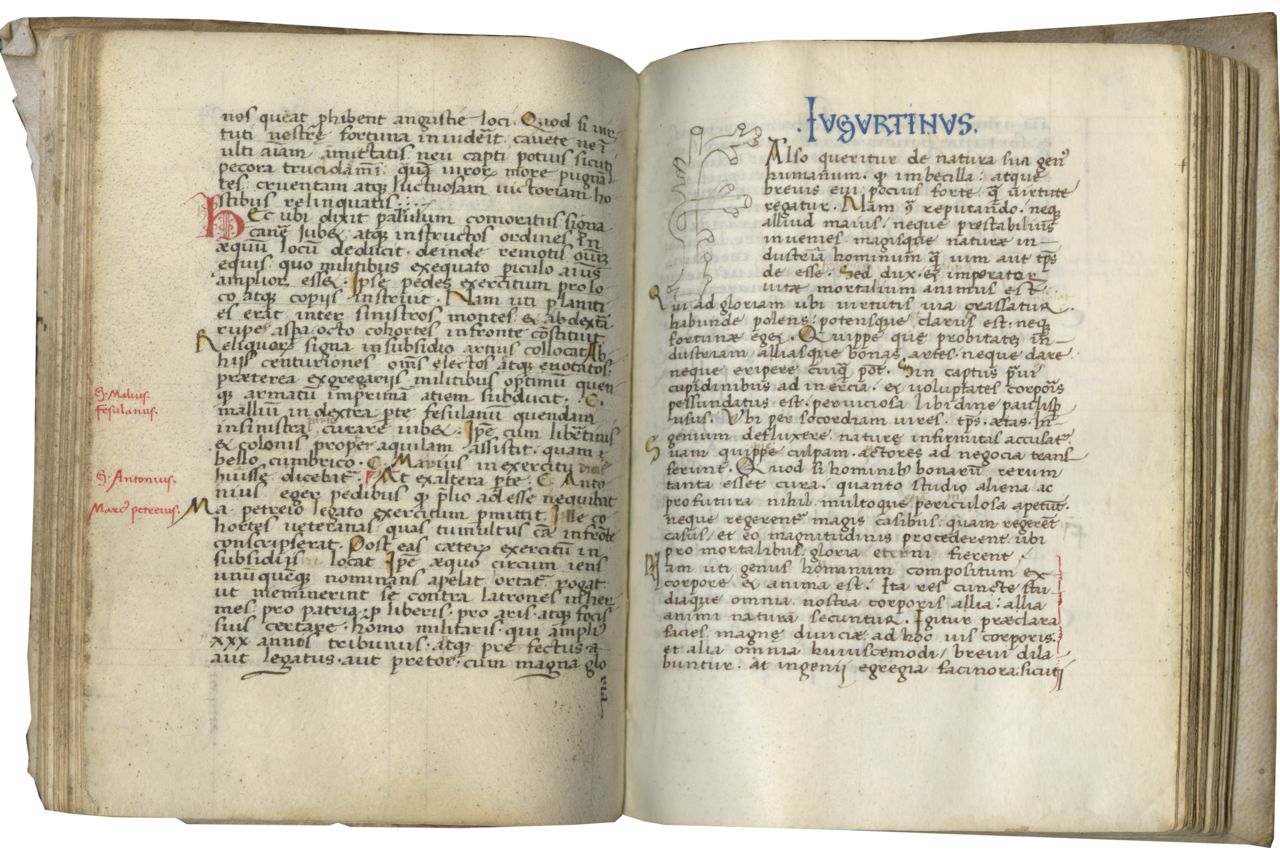 nos queat phibent angustie loci. Quod si uir-
tuti uestrę fortuna inuiderit cauete ne i
ulti aīam amictatis neu capti potius sicuti
pecora trucidami quā uiror more pugnā
tes cruentam atq luctuosam uictoriam ho
stibus relinquatis
HEc ubi dixit paululum comoratus signa
canē iubet atq instructos ordines in
æquū locū deducit deinde remotis oīūm
equis quo militibus exequato piculo aius
amplior esset Ipse pedes exercitum pro lo
co atq copijs instruit Nam uti planiti
es erat inter sinistros montes et ab dextā
rupe aspa octo cohortes in fronte cōstituit
Reliquorꝝ signa in subsidio artius collocat Ab
hijs centuriones oms electos atq euocatos
præterea ex gregarijs militibus optimū quen
q armatū in primam atiem subducit C.
malliū in dextra pte fesulanū quendam
in sinistra curare iubet Ipe cum libertinis
et colonis propter aquilam assistit quam
bello cumbrico C Marius in exercitu
huisse dicebat At ex altera pte C Anto
nius eger pedibus q plio adesse nequibat
Ma petreio legato exercitum pmittit Ille co
hortes ueteranas quas tumultus cā in frōte
conscripserat Post eas cæterꝝ exercitū in
subsidijs locat Ipe æquo circum iens
unū quēq nominans apelat ortat rogat
ut meminerint se contra latrones in her
mes pro patria p liberis pro aris atq focis
suis certare homo militaris qui ampli
XXX annos tribunus atq pre fectus a
aut legatus aut pretor cum magna glo
G. Malius.
fesulanus.
G. Antonius.
Marc petreius.
.IUGURTINUS.
Also queritur de natura sua gen
humanum q imbecilla atque
breuis eui pocius forte q uirtute
regatur Nam reputando neq
alliud maius neque prestabilius
inuenies magisque naturæ in-
dustriā hominum q uim aut tps
de esse Sed dux et imperator
uitæ mortalium animus est
Qui ad gloriam ubi uirtutis uia grassatur
habunde polens potensque clarus est neq
fortunæ eget Quippe que probitatē in-
dustriam alliasque bonas artes neque dare
neque eripere cuiq pōt Sin captus prui
cupidinibus ad inercia et uoluptates corporis
pessundatus est perniciosa libidine paulisp
usus Ubi per socordiam uires tps ætas In
genium defluxere nature infirmitas accusat
Suam quippe culpam actores ad negocia trans
ferunt Quod si hominib bonarū rerum
tanta esset cura quanto studio aliena ac
profutura nihil multoque periculosa apetūt
neque regerent magis casibus quam regerēt
casus et eo magnitudinis procederent ubi
pro mortalibus gloria eterni fierent
Nam uti genus homanum compositum ex
corpore et anima est Ita res cuncte stu
diaque omnia nostra corporis allia allia
animi natura secuntur Igitur præclara
facies magne diuiciæ ad hoc uis corporis
et alia omnia huiuscemodi breui dila
buntur At ingenij egregia facinora sicuti